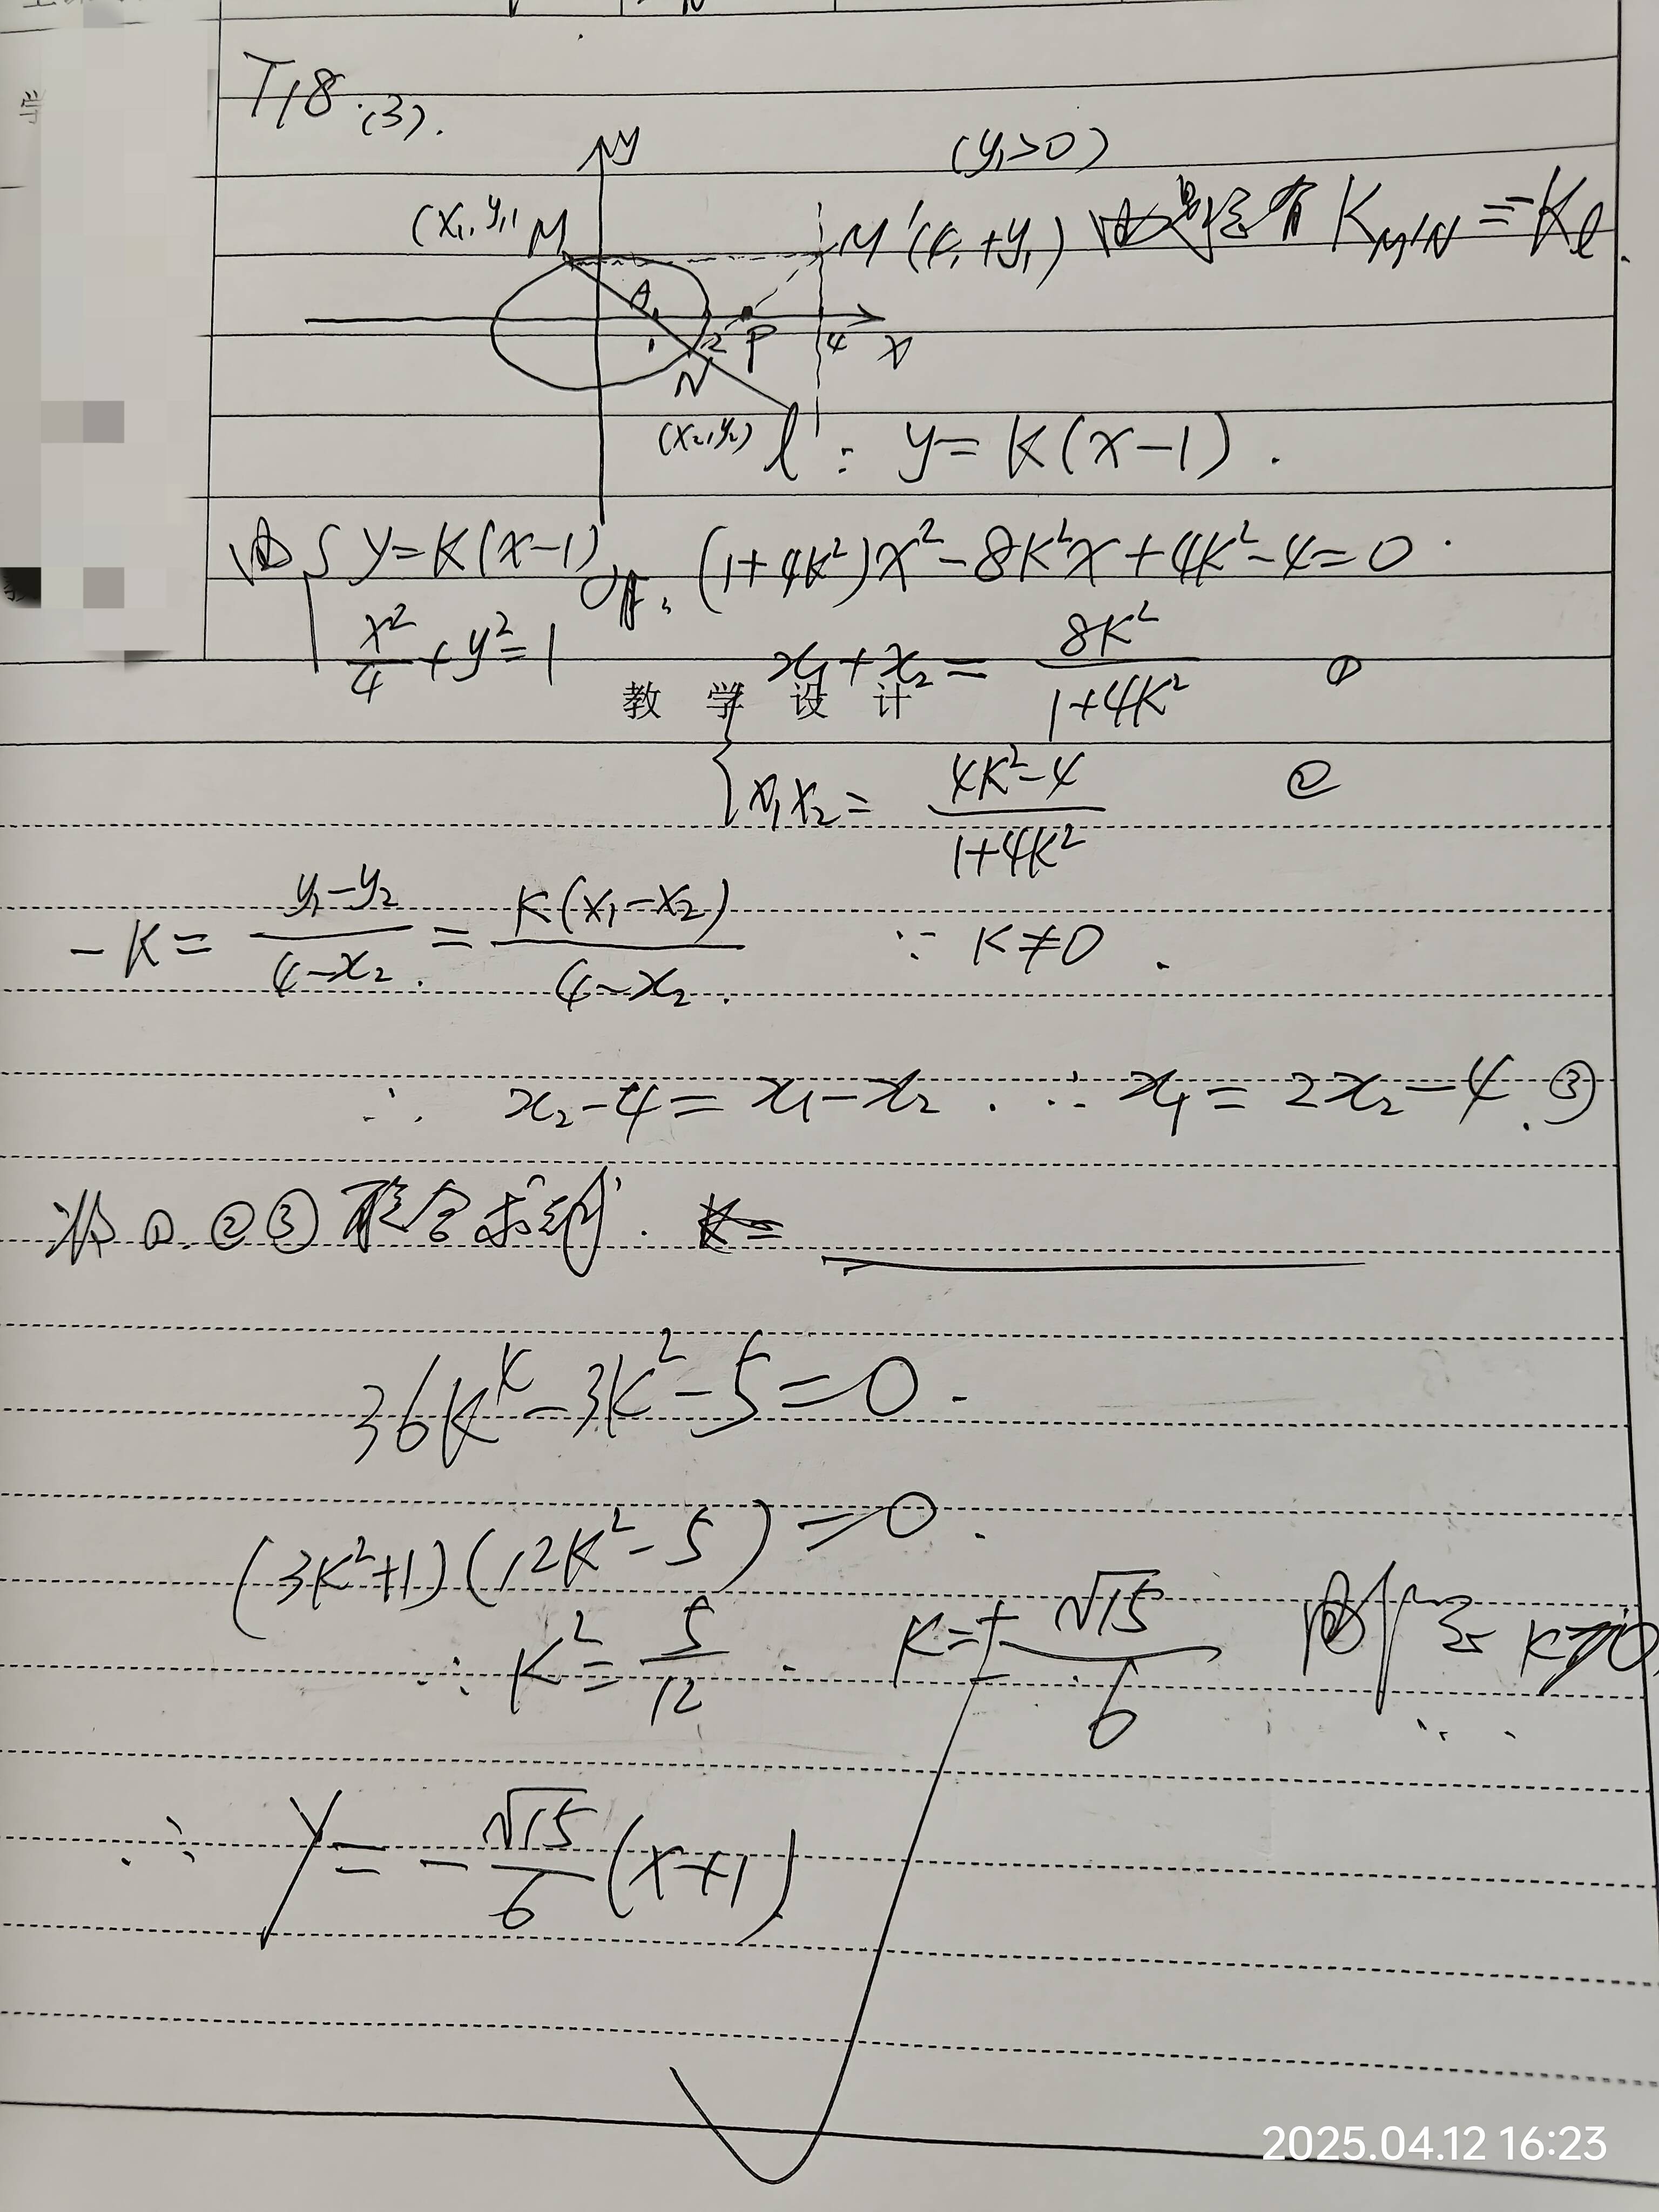 T18.(3).
y
(y₁>0)
(x₁, y₁) M
M'(4, +y₁) 由题意有 K_M'N = -K_l.
A
1
2
P
4
x
N
(x₂, y₂)
l : y=K(x-1).
由{y=K(x-1)
x²/4+y²=1
(1+4K²)x²-8K²x+4K²-4=0.
x₁+x₂= 8K²/(1+4K²) ①
教 学 设 计
x₁x₂= (4K²-4)/(1+4K²) ②
-K= (y₁-y₂)/(4-x₂) = K(x₁-x₂)/(4-x₂). ∵ K≠0.
∴ x₂-4=x₁-x₂. ∴ x₁=2x₂-4. ③
将①.②③联合求
36K⁴-3K²-5=0.
(3K²+1)(12K²-5)=0.
∴ K²=5/12. K=±√15/6
∴ y=-√15/6(x+1)
2025.04.12 16:23